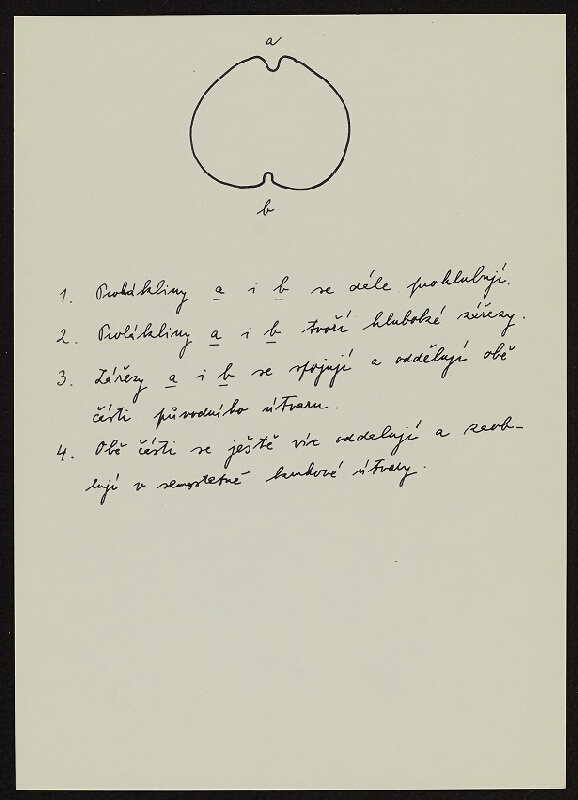 a
b
1. Prohákliny a i b se dále prohlubují.
2. Prolákliny a i b tvoří hluboké zářezy.
3. Zářezy a i b se spojují a oddělují obě
části původního útvaru.
4. Obě části se ještě víc oddalují a zaob-
lují v samostatné kruhové útvary.